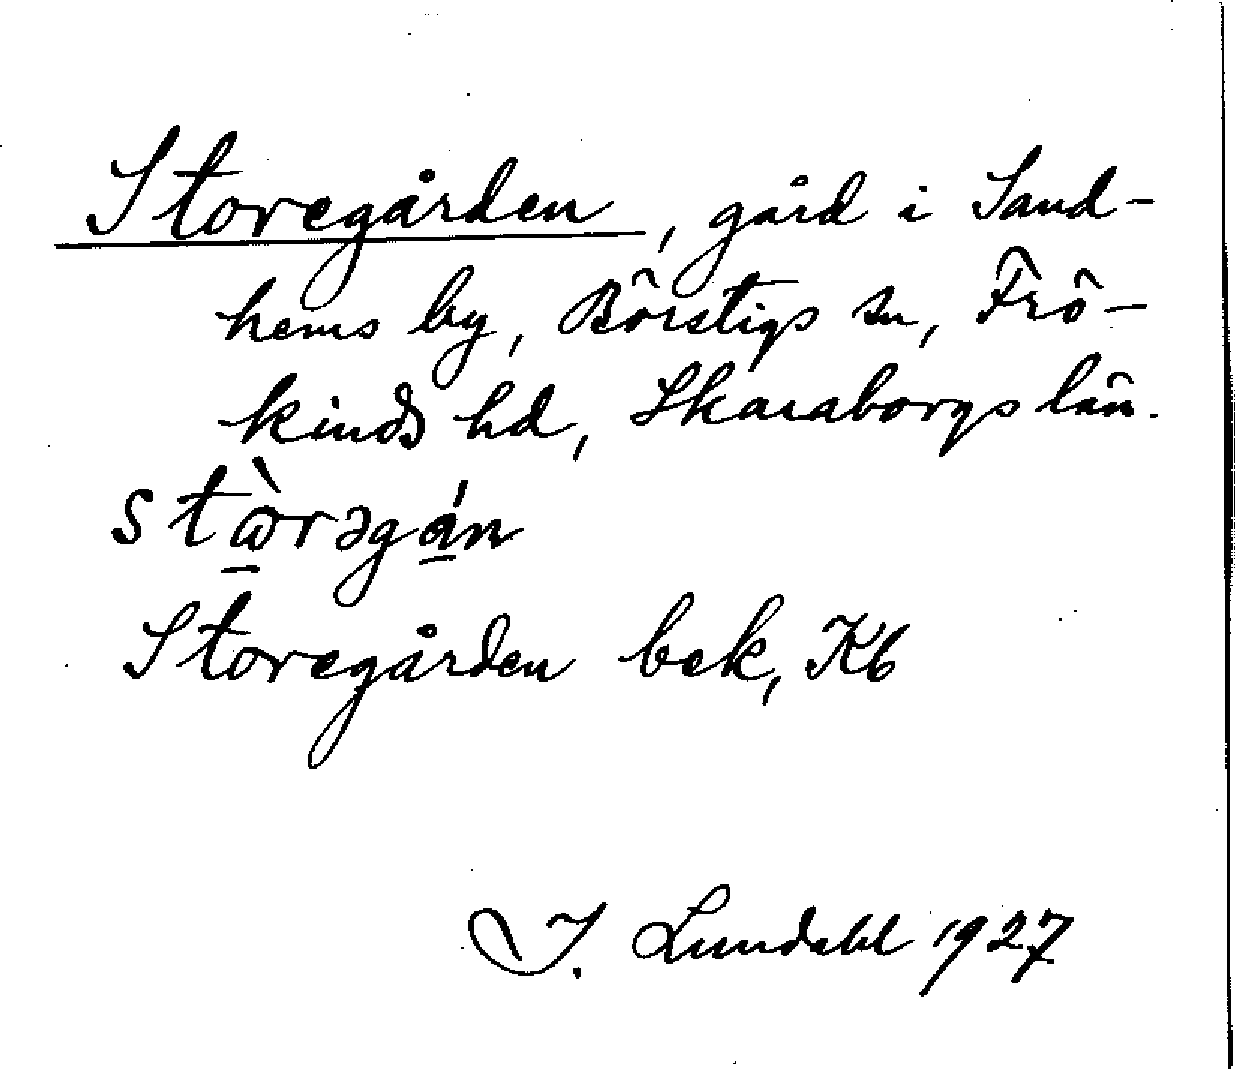 Storegården, gård i Sand-
hems by, Börstigs sn, Frö-
kinds hd, Skaraborgs län.
stὼrəgán
Storegården bek, Kb
I. Lundahl 1927